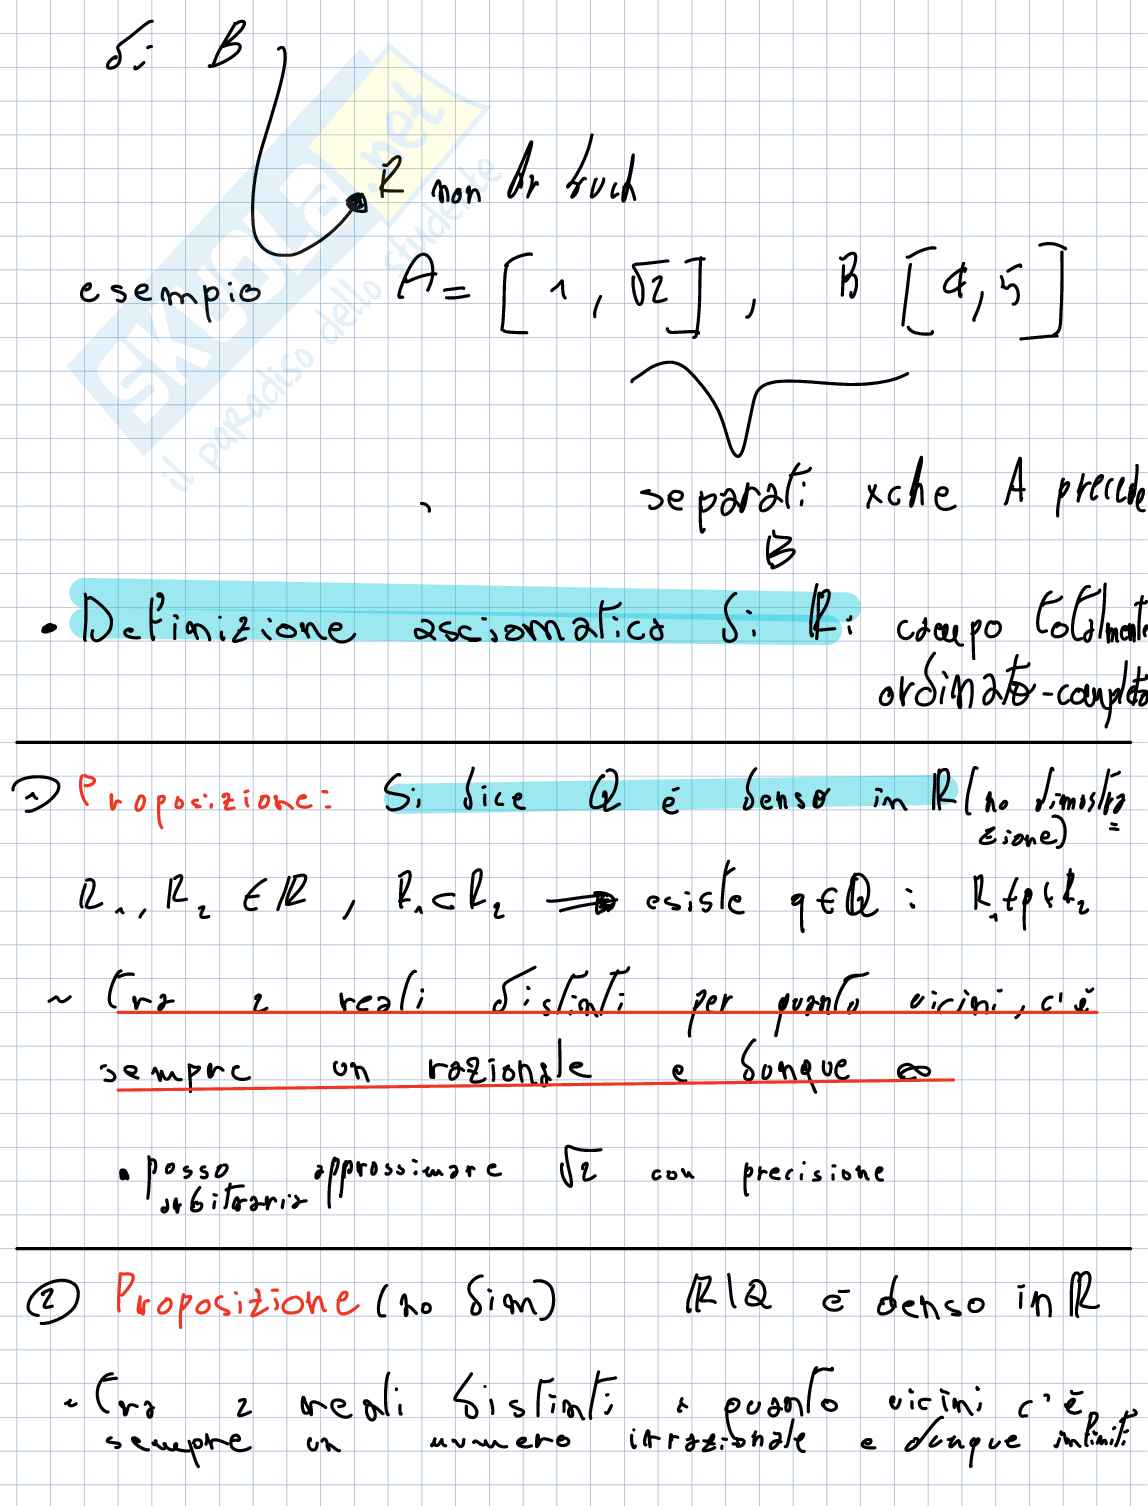 di B
R non ha buchi
esempio A = [1, √2], B [4, 5]
separati xche A precede
B
• Definizione assiomatica di ℝ: campo totalmente
ordinato-completo
① Proposizione: Si dice Q é denso in ℝ (no dimostra=
zione)
R₁, R₂ ∈ ℝ, R₁<R₂ ⟹ esiste q∈Q : R₁<q<R₂
~ Tra 2 reali distinti per quanto vicini, c'è
sempre un razionale e dunque ∞
• posso approssimare √2 con precisione
arbitraria
② Proposizione (no dim) ℝ\Q è denso in ℝ
~ Tra 2 reali distinti x quanto vicini c'è
sempre un numero irrazionale e dunque infiniti
SKUOLA.net
il paradiso dello studente